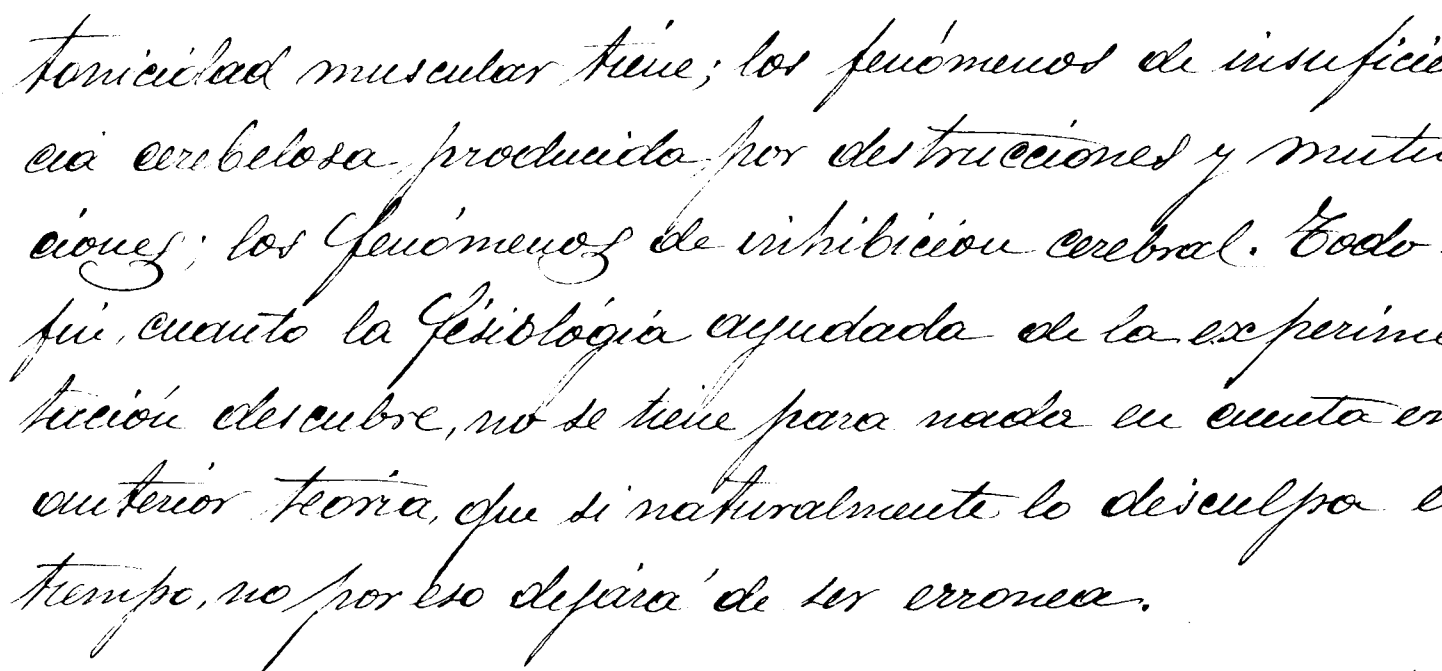 tonicidad muscular tiene; los fenómenos de insuficie
cia cerebelosa producida por destrucciones y mutu
ciones; los fenómenos de inhibicion cerebral. Todo
fin, cuanto la fisiología ayudada de la experime
tación descubre, no se tiene para nada en cuenta en
anterior teoria, que si naturalmente lo disculpa e
tiempo, no por eso dejará de ser erronea.